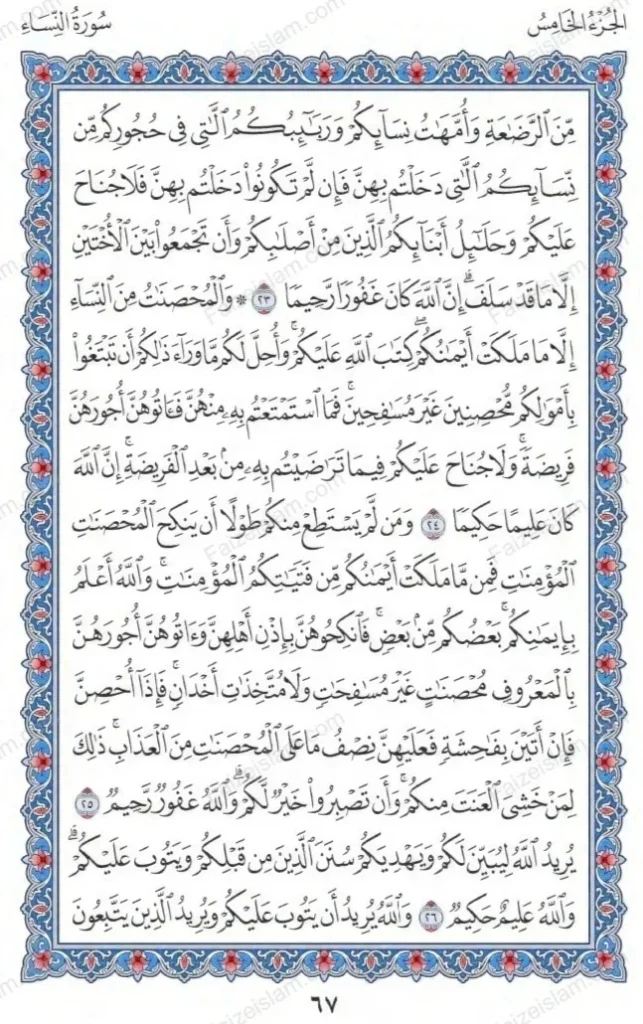 الجُزْءُ الخَامِسُ
سُورَةُ النِّسَاءِ
مِّنَ ٱلرَّضَٰعَةِ وَأُمَّهَٰتُ نِسَآئِكُمْ وَرَبَٰٓئِبُكُمُ ٱلَّٰتِي فِي حُجُورِكُم مِّن
نِّسَآئِكُمُ ٱلَّٰتِي دَخَلْتُم بِهِنَّ فَإِن لَّمْ تَكُونُوا۟ دَخَلْتُم بِهِنَّ فَلَا جُنَاحَ
عَلَيْكُمْ وَحَلَٰٓئِلُ أَبْنَآئِكُمُ ٱلَّذِينَ مِنْ أَصْلَٰبِكُمْ وَأَن تَجْمَعُوا۟ بَيْنَ ٱلْأُخْتَيْنِ
إِلَّا مَا قَدْ سَلَفَ ۗ إِنَّ ٱللَّهَ كَانَ غَفُورًا رَّحِيمًا ٢٣ * وَٱلْمُحْصَنَٰتُ مِنَ ٱلنِّسَآءِ
إِلَّا مَا مَلَكَتْ أَيْمَٰنُكُمْ ۖ كِتَٰبَ ٱللَّهِ عَلَيْكُمْ ۚ وَأُحِلَّ لَكُم مَّا وَرَآءَ ذَٰلِكُمْ أَن تَبْتَغُوا۟
بِأَمْوَٰلِكُم مُّحْصِنِينَ غَيْرَ مُسَٰفِحِينَ ۚ فَمَا ٱسْتَمْتَعْتُم بِهِۦ مِنْهُنَّ فَـَٔاتُوهُنَّ أُجُورَهُنَّ
فَرِيضَةً ۚ وَلَا جُنَاحَ عَلَيْكُمْ فِيمَا تَرَٰضَيْتُم بِهِۦ مِنۢ بَعْدِ ٱلْفَرِيضَةِ ۚ إِنَّ ٱللَّهَ
كَانَ عَلِيمًا حَكِيمًا ٢٤ وَمَن لَّمْ يَسْتَطِعْ مِنكُمْ طَوْلًا أَن يَنكِحَ ٱلْمُحْصَنَٰتِ
ٱلْمُؤْمِنَٰتِ فَمِن مَّا مَلَكَتْ أَيْمَٰنُكُم مِّن فَتَيَٰتِكُمُ ٱلْمُؤْمِنَٰتِ ۚ وَٱللَّهُ أَعْلَمُ
بِإِيمَٰنِكُم ۚ بَعْضُكُم مِّنۢ بَعْضٍ ۚ فَٱنكِحُوهُنَّ بِإِذْنِ أَهْلِهِنَّ وَءَاتُوهُنَّ أُجُورَهُنَّ
بِٱلْمَعْرُوفِ مُحْصَنَٰتٍ غَيْرَ مُسَٰفِحَٰتٍ وَلَا مُتَّخِذَٰتِ أَخْدَانٍ ۚ فَإِذَآ أُحْصِنَّ
فَإِنْ أَتَيْنَ بِفَٰحِشَةٍ فَعَلَيْهِنَّ نِصْفُ مَا عَلَى ٱلْمُحْصَنَٰتِ مِنَ ٱلْعَذَابِ ۚ ذَٰلِكَ
لِمَنْ خَشِيَ ٱلْعَنَتَ مِنكُمْ ۚ وَأَن تَصْبِرُوا۟ خَيْرٌ لَّكُمْ ۗ وَٱللَّهُ غَفُورٌ رَّحِيمٌ ٢٥
يُرِيدُ ٱللَّهُ لِيُبَيِّنَ لَكُمْ وَيَهْدِيَكُمْ سُنَنَ ٱلَّذِينَ مِن قَبْلِكُمْ وَيَتُوبَ عَلَيْكُمْ ۗ
وَٱللَّهُ عَلِيمٌ حَكِيمٌ ٢٦ وَٱللَّهُ يُرِيدُ أَن يَتُوبَ عَلَيْكُمْ وَيُرِيدُ ٱلَّذِينَ يَتَّبِعُونَ
٦٧
Faizeislam.com